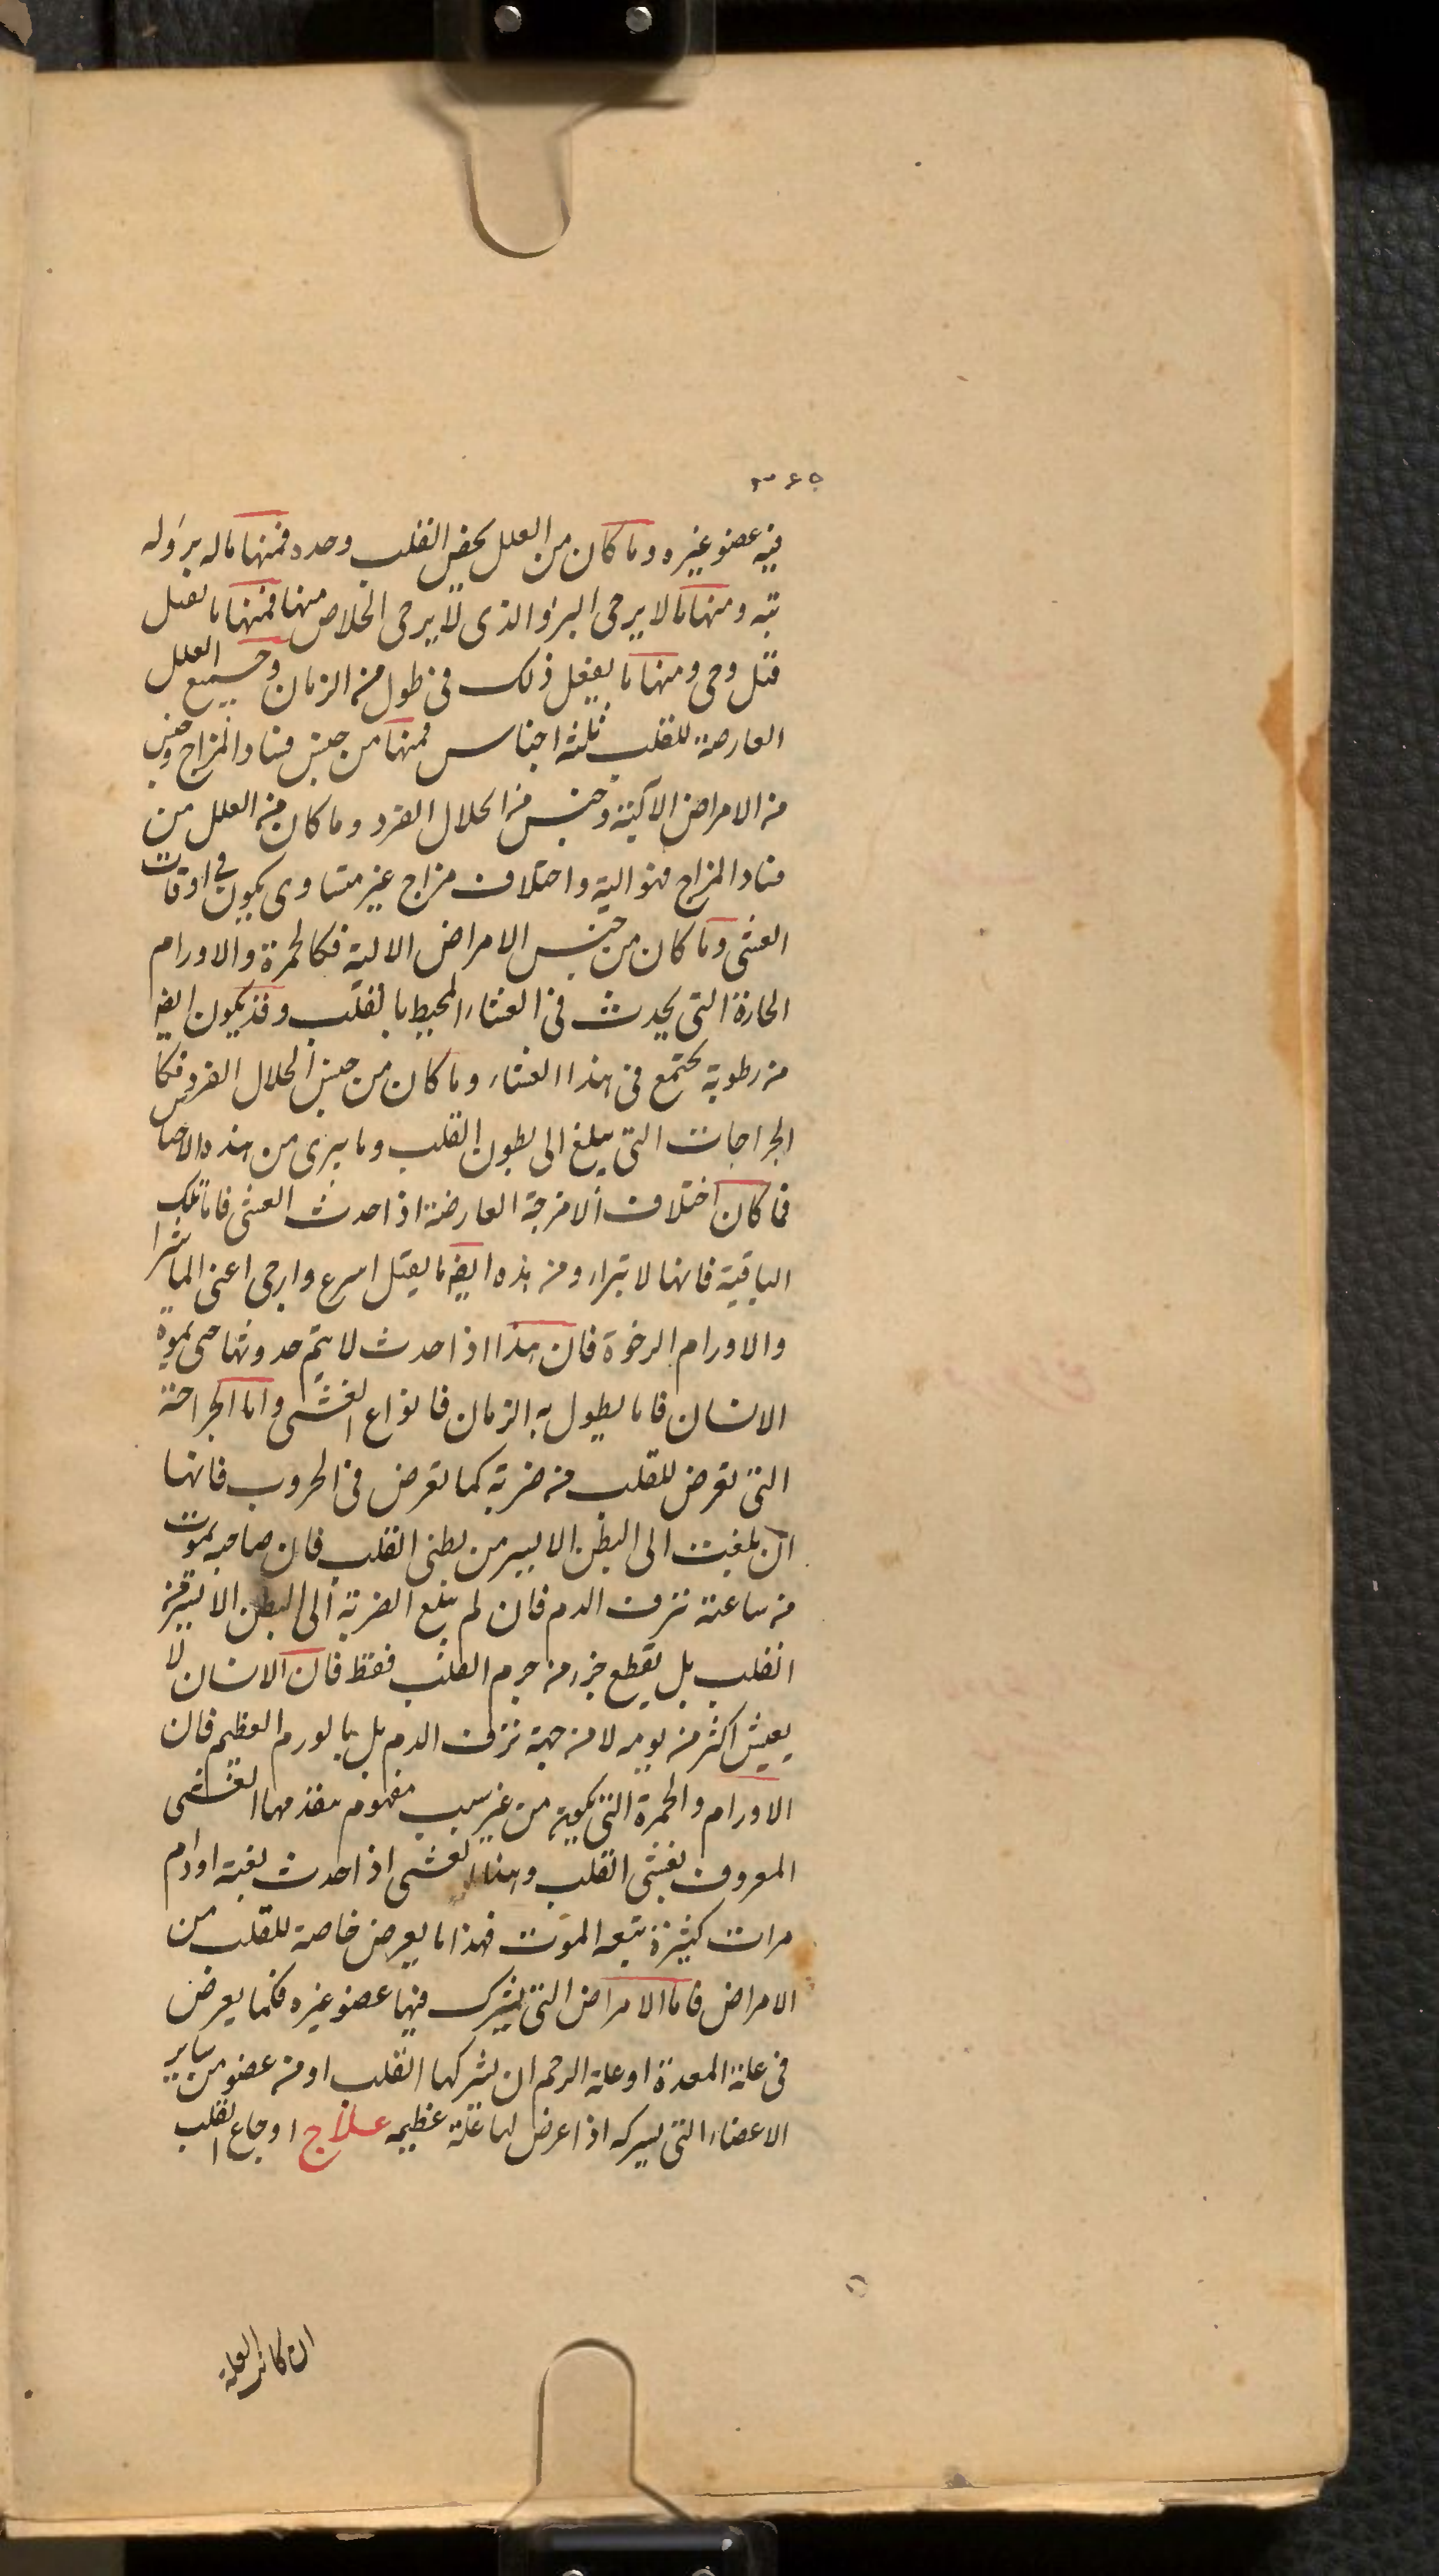 ٣٤٥
فيه عضو غيره وما كان من العلل يخص القلب وحده فمنها ماله برؤله
بته ومنها مالا يرجى البرؤ والذى لا يرجى الخلاص منها فمنها ما يقتل
قتل وحى ومنها ما يفعل ذلك فى طول من الزمان وجميع العلل
العارضة للقلب ثلثه اجناس فمنها من جنس فساد المزاج وجنس
من الامراض الآلية وجنس من انحلال الفرد وما كان من العلل من
فساد المزاج فهو الية واختلاف مزاج غير متساوى يكون فى اوقات
الغشى وما كان من جنس الامراض الالية فكالحمرة والاورام
الحارة التى يحدث فى الغشاء المحيط بالقلب وقد يكون ايضا
من رطوبة يجتمع فى هذا الغشاء وما كان من جنس انحلال الفرد فكا
الجراحات التى يبلغ الى بطون القلب وما يبرى من هذه الاجناس
فما كان اختلاف الامزجة العارضة اذا حدث الغشى فاما تلك
الباقية فانها لا تبراء ومن هذه ايضا ما يقتل اسرع وارحى اعنى الماشرا
والاورام الرخوة فان هذا اذا حدث لا يتم حدوثها حتى يموت
الانسان فاما يطول به الزمان فانواع الغشى واما الجراحة
التى تعرض للقلب من ضربة كما تعرض فى الحروب فانها
ان بلغت الى البطن الايسر من بطنى القلب فان صاحبه يموت
من ساعته نزف الدم فان لم يبلغ الضربة الى البطن الايسر من
القلب بل يقطع جزء من جرم القلب فقط فان الانسان لا
يعيش اكثر من يومه لا من جهة نزف الدم بل بالورم العظيم فان
الاورام والحمرة التى يكون من غير سبب مفهوم يتقدمها الغشى
المعروف بغشى القلب وهذا الغشى اذا حدث بغتة اودام
مرات كثيرة تتبعه الموت فهذا ما يعرض خاصة للقلب من
الامراض فاما الامراض التى يشترك فيها عضو غيره فكما يعرض
فى علة المعدة او علة الرحم ان يشركها القلب او من عضو من ساير
الاعضاء التى يشركه اذا عرض لها علة عظيمه علاج اوجاع القلب
ان كانت العلة